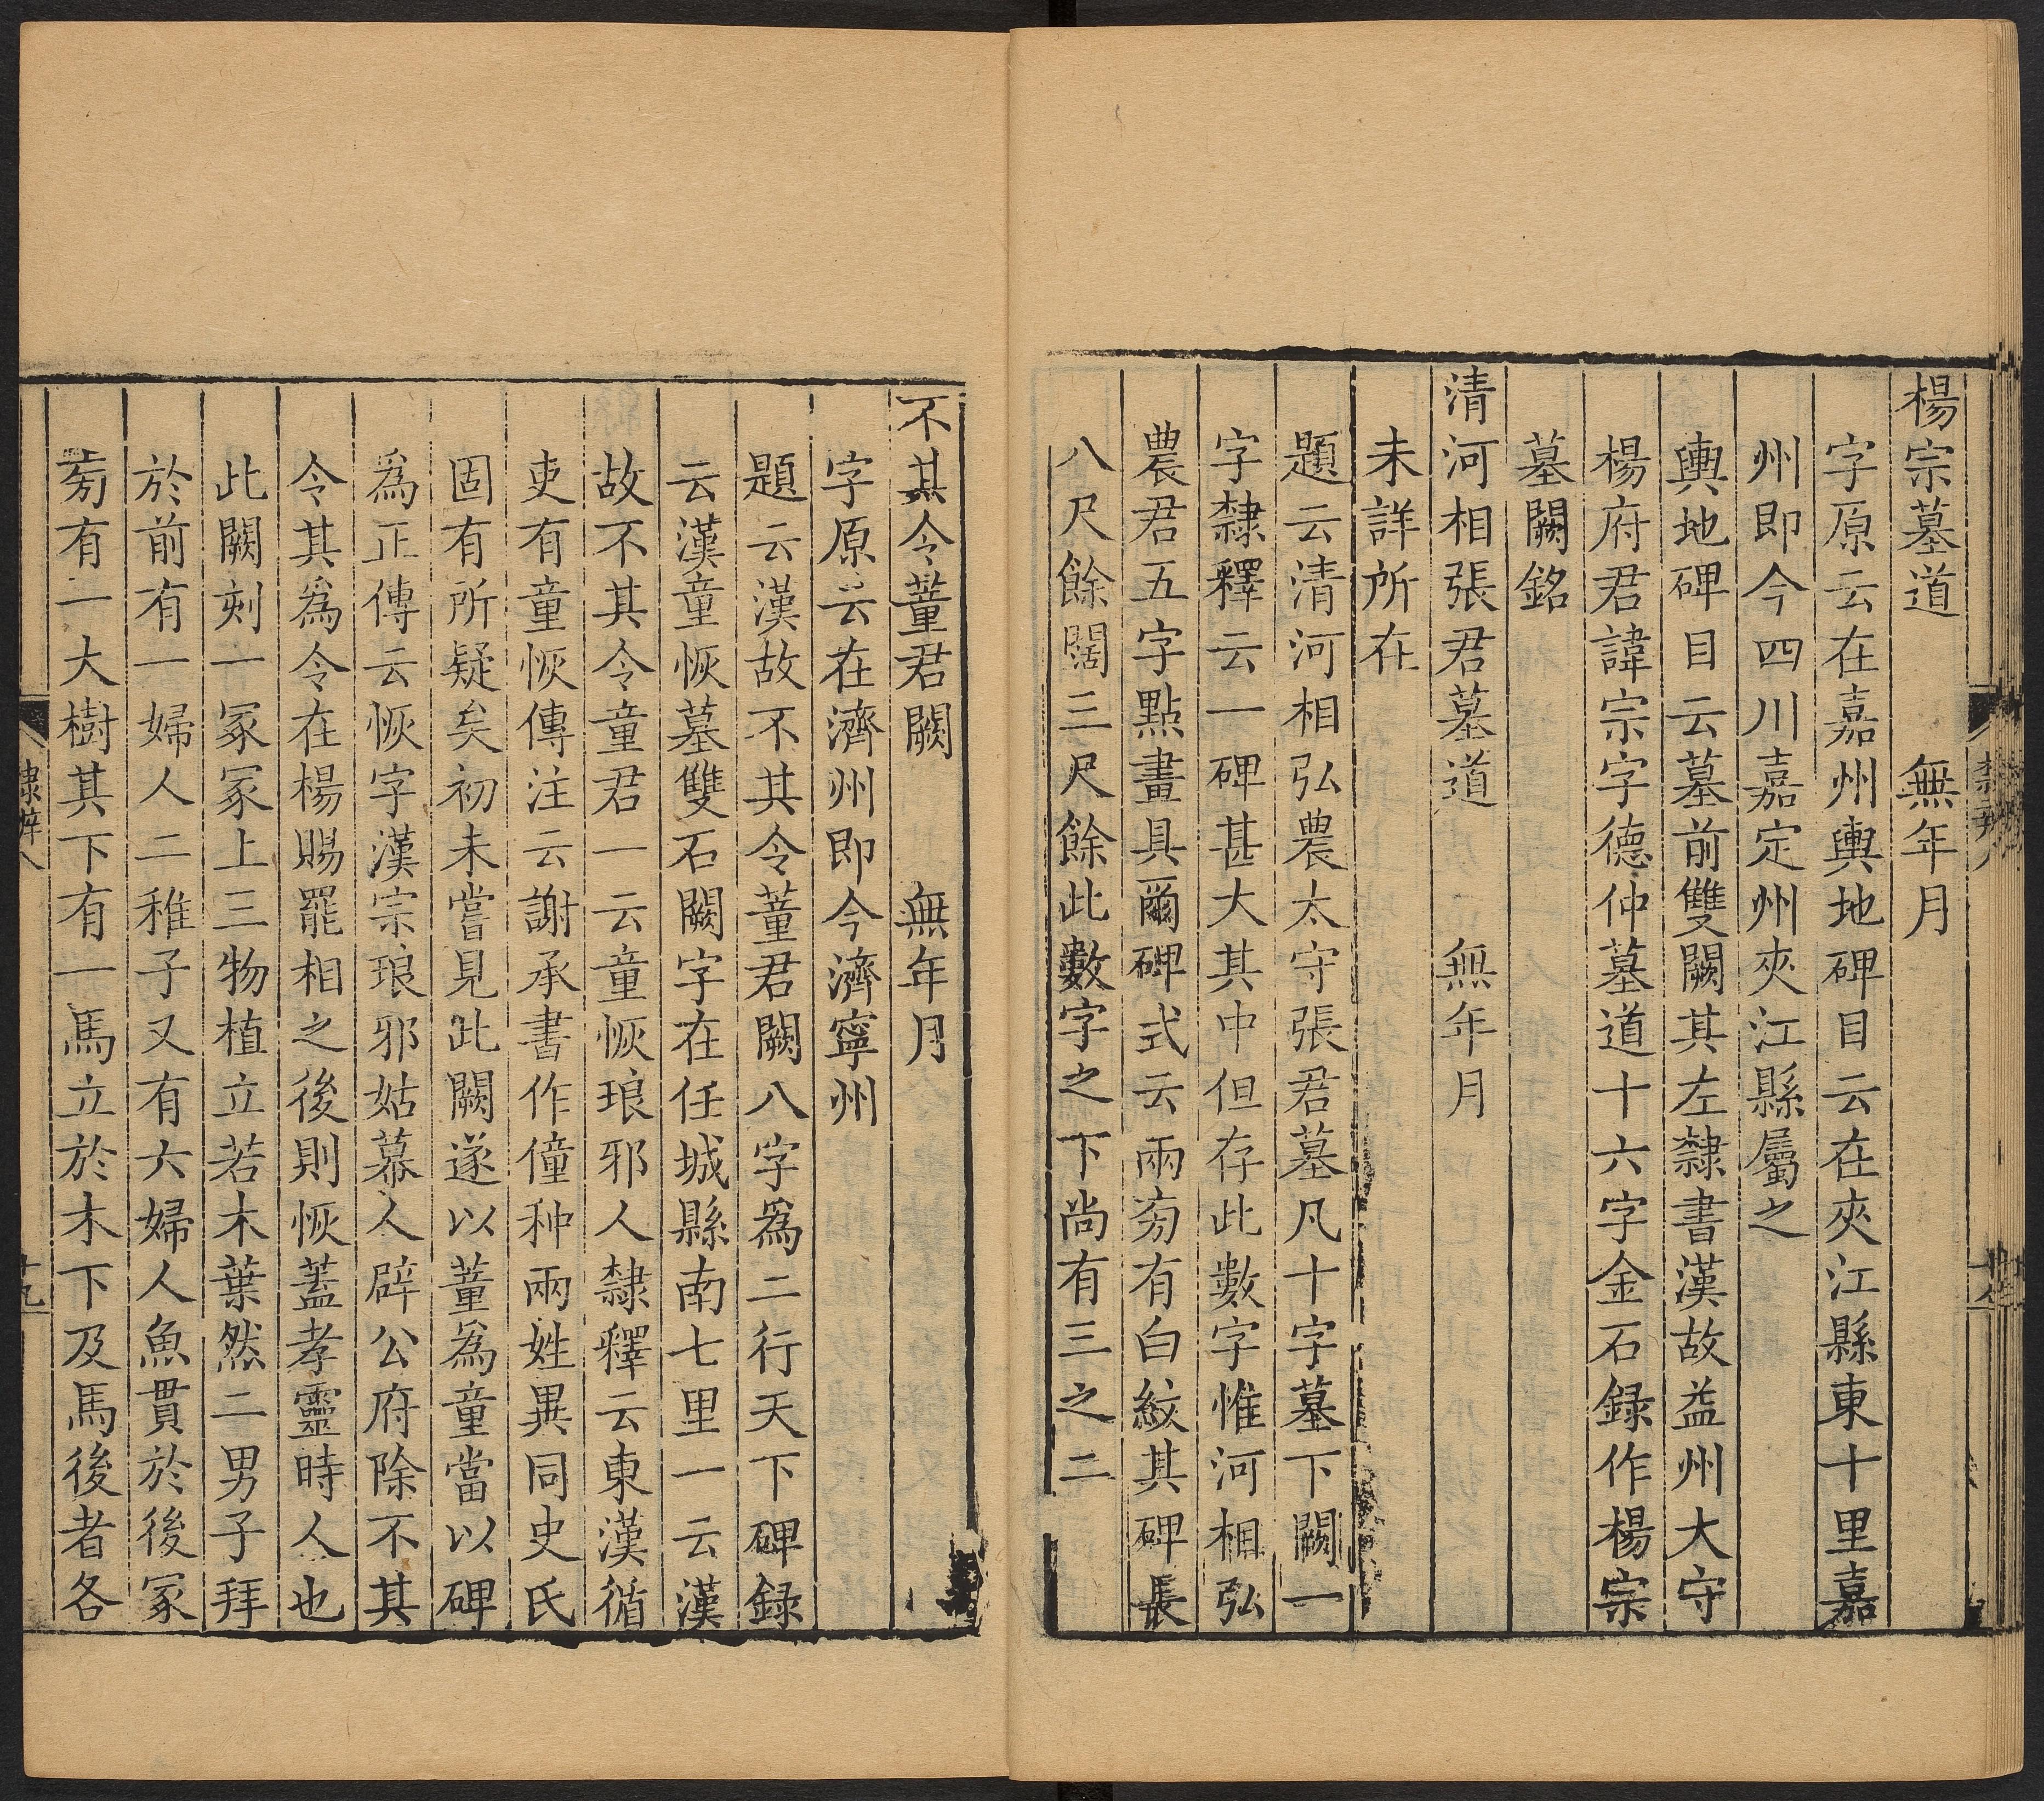 楊宗墓道　無年月
字原云在嘉州輿地碑目云在夾江縣東十里嘉
州即今四川嘉定州夾江縣屬之
輿地碑目云墓前雙闕其左隸書漢故益州大守
楊府君諱宗字德仲墓道十六字金石録作楊宗
墓闕銘
清河相張君墓道　無年月
未詳所在
題云清河相弘農太守張君墓凡十字墓下闕一
字隸釋云一碑甚大其中但存此數字惟河相弘
農君五字點畫具爾碑式云兩㫄有白紋其碑長
八尺餘闊三尺餘此數字之下尚有三之二
不其令董君闕　無年月
字原云在濟州即今濟寧州
題云漢故不其令董君闕八字爲二行天下碑録
云漢童恢墓雙石闕字在任城縣南七里一云漢
故不其令童君一云童恢琅邪人隸釋云東漢循
吏有童恢傳注云謝承書作僮种兩姓異同史氏
固有所疑矣初未嘗見此闕遂以董爲童當以碑
爲正傳云恢字漢宗琅邪姑幕人辟公府除不其
令其爲令在楊賜罷相之後則恢蓋孝靈時人也
此闕刻一冢冢上三物植立若木葉然二男子拜
於前有一婦人二稚子又有六婦人魚貫於後冢
㫄有一大樹其下有一馬立於木下及馬後者各
隸辨八